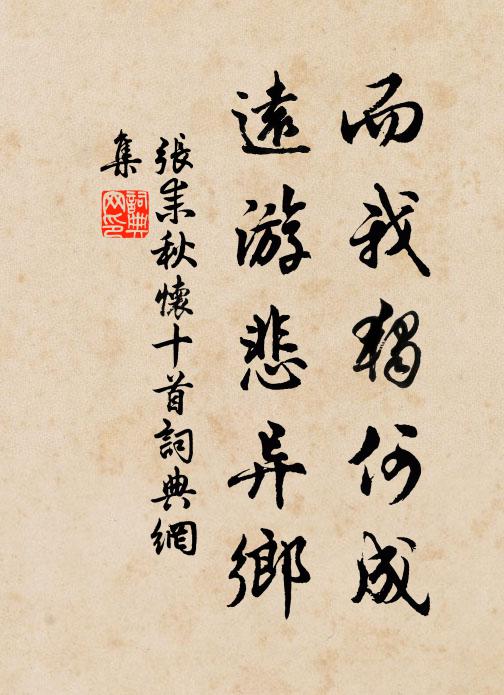 而我獨何成
遠游悲异鄉
張耒秋懷十首詞典網
集
詞典
网印